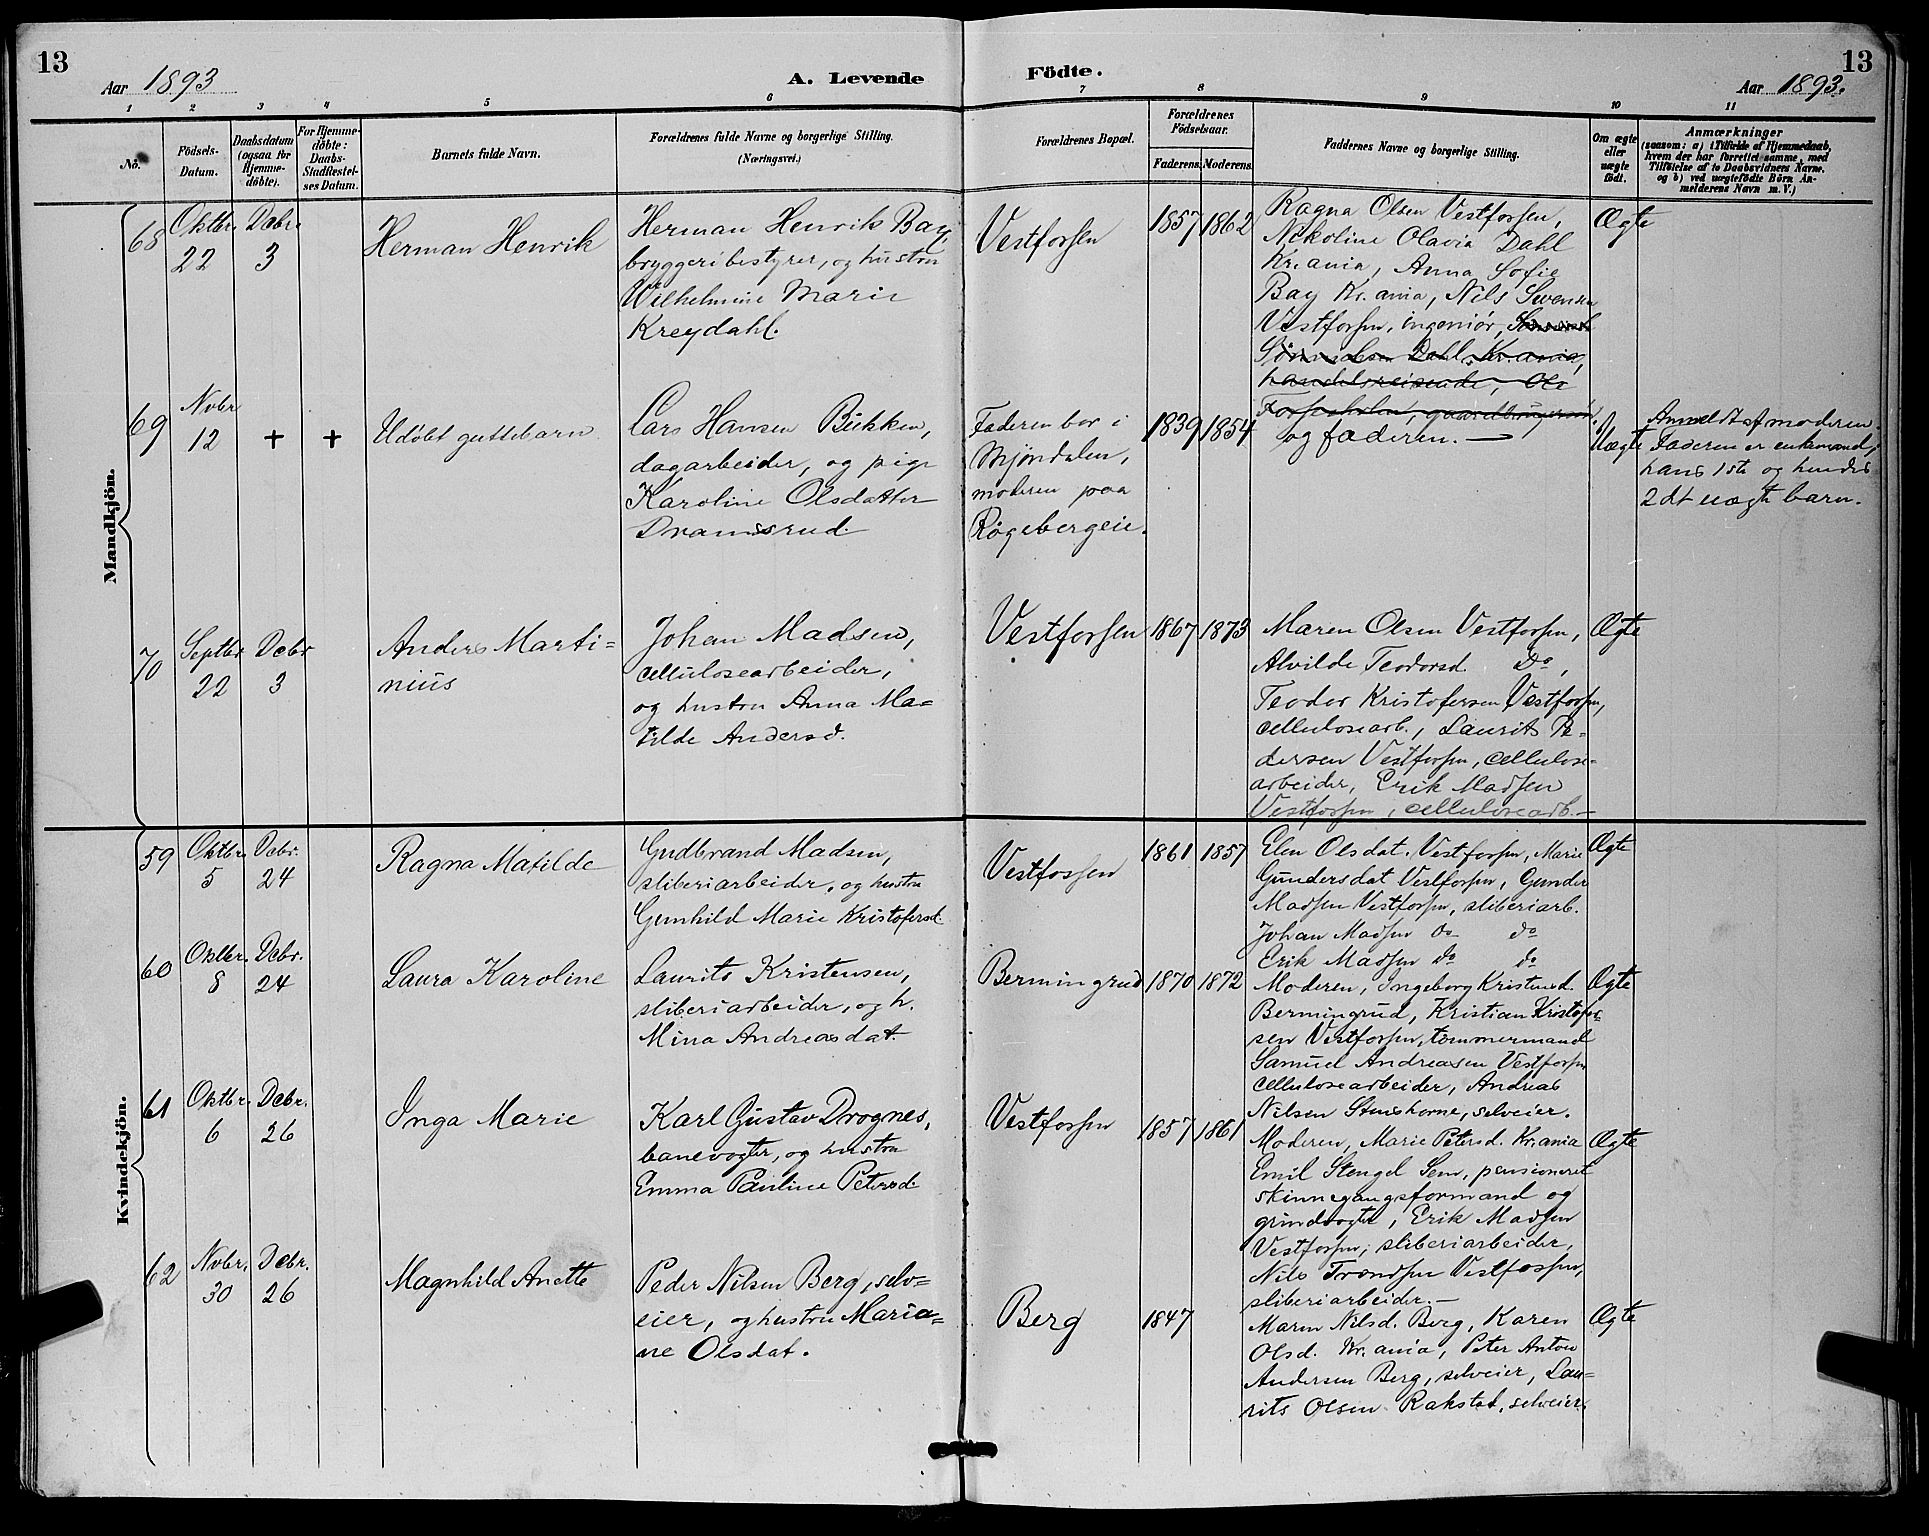 13
13
Aar 1893
A. Levende Födte.
Aar 1893.
1 2 3 4 5 6 7 8 9 10 11
No.
Födsels-
Datum.
Daabsdatum
(ogsaa for
Hjemme-
döbte).
For Hjemme-
döbte:
Daabs-
Stadfæstel-
ses Datum.
Barnets fulde Navn.
Forældrenes fulde Navne og borgerlige Stilling.
(Næringsvei.)
Forældrenes Bopæl.
Forældrenes
Födselsaar.
Faderens. Moderens.
Faddernes Navne og borgerlige Stilling.
Om ægte
eller
uægte
födt.
Anmærkninger
(saasom: a) i Tilfælde af Hjemmedaab,
hvem der har forrettet samme, med
Tilföielse af to Daabsvidners Navne,
og b) ved uægtefödte Börn An-
melderens Navn m. V.)
Mandkjön.
68
Oktbr.
22
Dcbr.
3
Herman Henrik
Herman Henrik Bay,
bryggeribestyrer, og hustru
Wilhelmine Marie
Kreydahl.
Vestfossen
1857 1862
Ragna Olsen Vestfossen,
Nikoline Olavia Dahl
Kr.ania, Anna Sofie
Bay Kr.ania, Nils Svensen
Vestfossen, ingeniør,
Dahl, Kr.ania,
handelsreisende, Ole
og faderen. —
Ægte
69
Nvbr
12
+
+
Udøbt guttebarn
Lars Hansen Bükken,
dagarbeider, og pige
Karoline Olsdatter
Dramsrud.
Faderen bor i
Mjøndalen,
moderen paa
Røgebergeie.
1839 1854
Uægte
Anmeldt af moderen.
Faderen er enkemand,
hans 1ste og hendes
2det uægte barn.
70
Septbr
22
Dcbr
3
Anders Marti-
nius
Johan Madsen,
cellulosearbeider,
og hustru Anna Ma-
tilde Andersd.
Vestfossen
1867 1873
Maren Olsen Vestfossen,
Alvilde Teodorsd. Do,
Teodor Kristofersen Vestfossen,
cellulosearb., Laurits Pe-
dersen Vestfossen, cellulose-
arbeider, Erik Madsen
Vestfossen, cellulosearb. —
Ægte
Kvindekjön.
59
Oktbr.
5
Dcbr.
24
Ragna Matilde
Gudbrand Madsen,
sliberiarbeider, og hustru
Gunhild Marie Kristofersd.
Vestfossen
1861 1857
Elen Olsdat. Vestfossen, Marie
Gundersdat Vestfossen, Gunder
Madsen Vestfossen, sliberiarb.
Johan Madsen do do
Erik Madsen do do
Ægte
60
Oktbr.
8
Dcbr.
24
Laura Karoline
Laurits Kristensen,
sliberiarbeider, og h.
Mina Andreasdat.
Bermingrud
1870 1872
Moderen, Ingeborg Kristensd.
Bermingrud, Kristian Kristofer-
sen Vestfossen, tømmermand
Samuel Andreasen Vestfossen
cellulosearbeider, Andreas
Nilsen Stenshorne, selveier.
Ægte
61
Oktbr.
6
Dcbr.
26
Inga Marie
Karl Gustav Drognes,
banevogter, og hustru
Emma Pauline Petersd.
Vestfossen
1857 1861
Moderen, Marie Petersd. Kr.ania
Emil Stengel Sem, pensioneret
skinnegangsformand og
grindvogter, Erik Madsen
Vestfossen, sliberiarbeider,
Nils Trondsen Vestfossen,
sliberiarbeider. —
Ægte
62
Nvbr.
30
Dcbr.
26
Magnhild Anette
Peder Nilsen Berg, selv-
eier, og hustru Maria-
ne Olsdat.
Berg
1847
Maren Nilsd. Berg, Karen
Olsd. Kr.ania, Peter Anton
Andersen Berg, selveier, Lau-
rits Olsen Rakstad, selveier.
Ægte